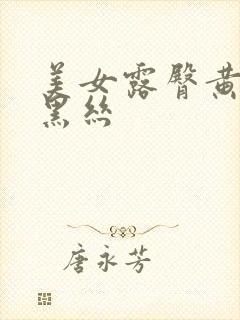 美女露臀黄
黑丝
唐永芳